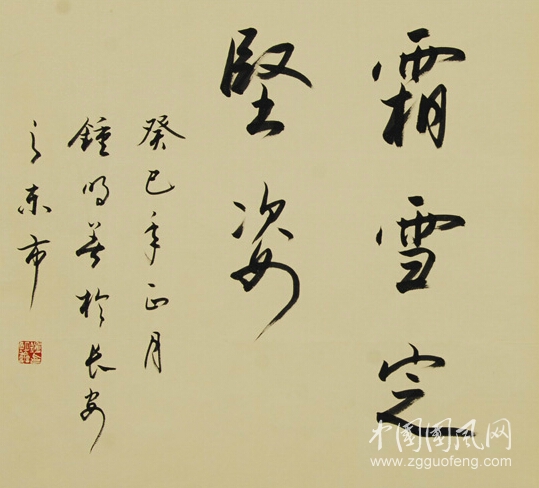 霜雪定
堅姿
癸巳年正月
鍾明善於長安
之東市
中国国风网
www.zgguofeng.com